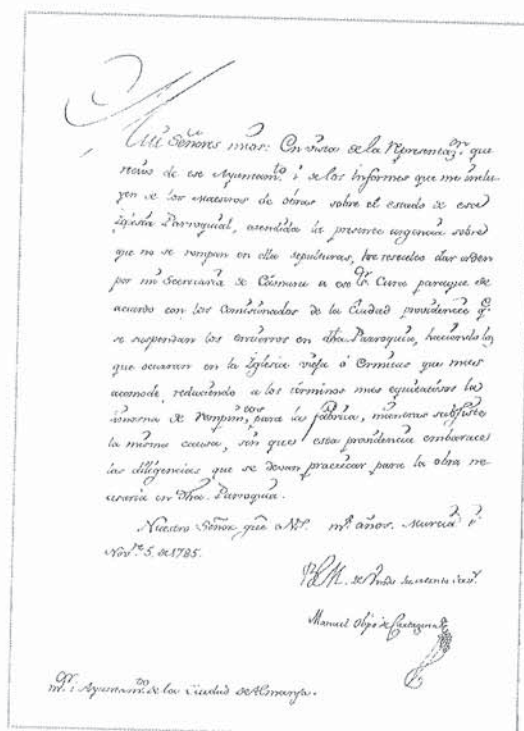 Mui Señores mios: En vista de la Representaz.on que
recivo de ese Ayuntam.to i de los informes que me inclu-
yen de los Maestros de obras sobre el estado de esa
Iglesia Parroquial, atendida la presente urgencia sobre
que no se rompan en ella sepulturas, he resuelto dar orden
por mi Secretaria de Cámara a ese S.r Cura paraque de
acuerdo con los Comisionados de la Ciudad providencie q.e
se suspendan los entierros en dha Parroquia, haciendo los
que ocurran en la Iglesia vieja ó Ermitas que mas
acomode, reduciendo a los términos mas equitativos la
limosna de Rompim.tos para la fabrica, mientras subsiste
la misma causa, sin que esta providencia embarace
las diligencias que se devan practicar para la obra ne-
cesaria en Dha. Parroquia.
Nuestro Señor gue a VS. m.s años. Murcia i
Nov.re 5. de 1785.
BLM. de V.S. su
Manuel Obpo de Cartagena
M. i Ayuntam.to de la Ciudad de Almansa.